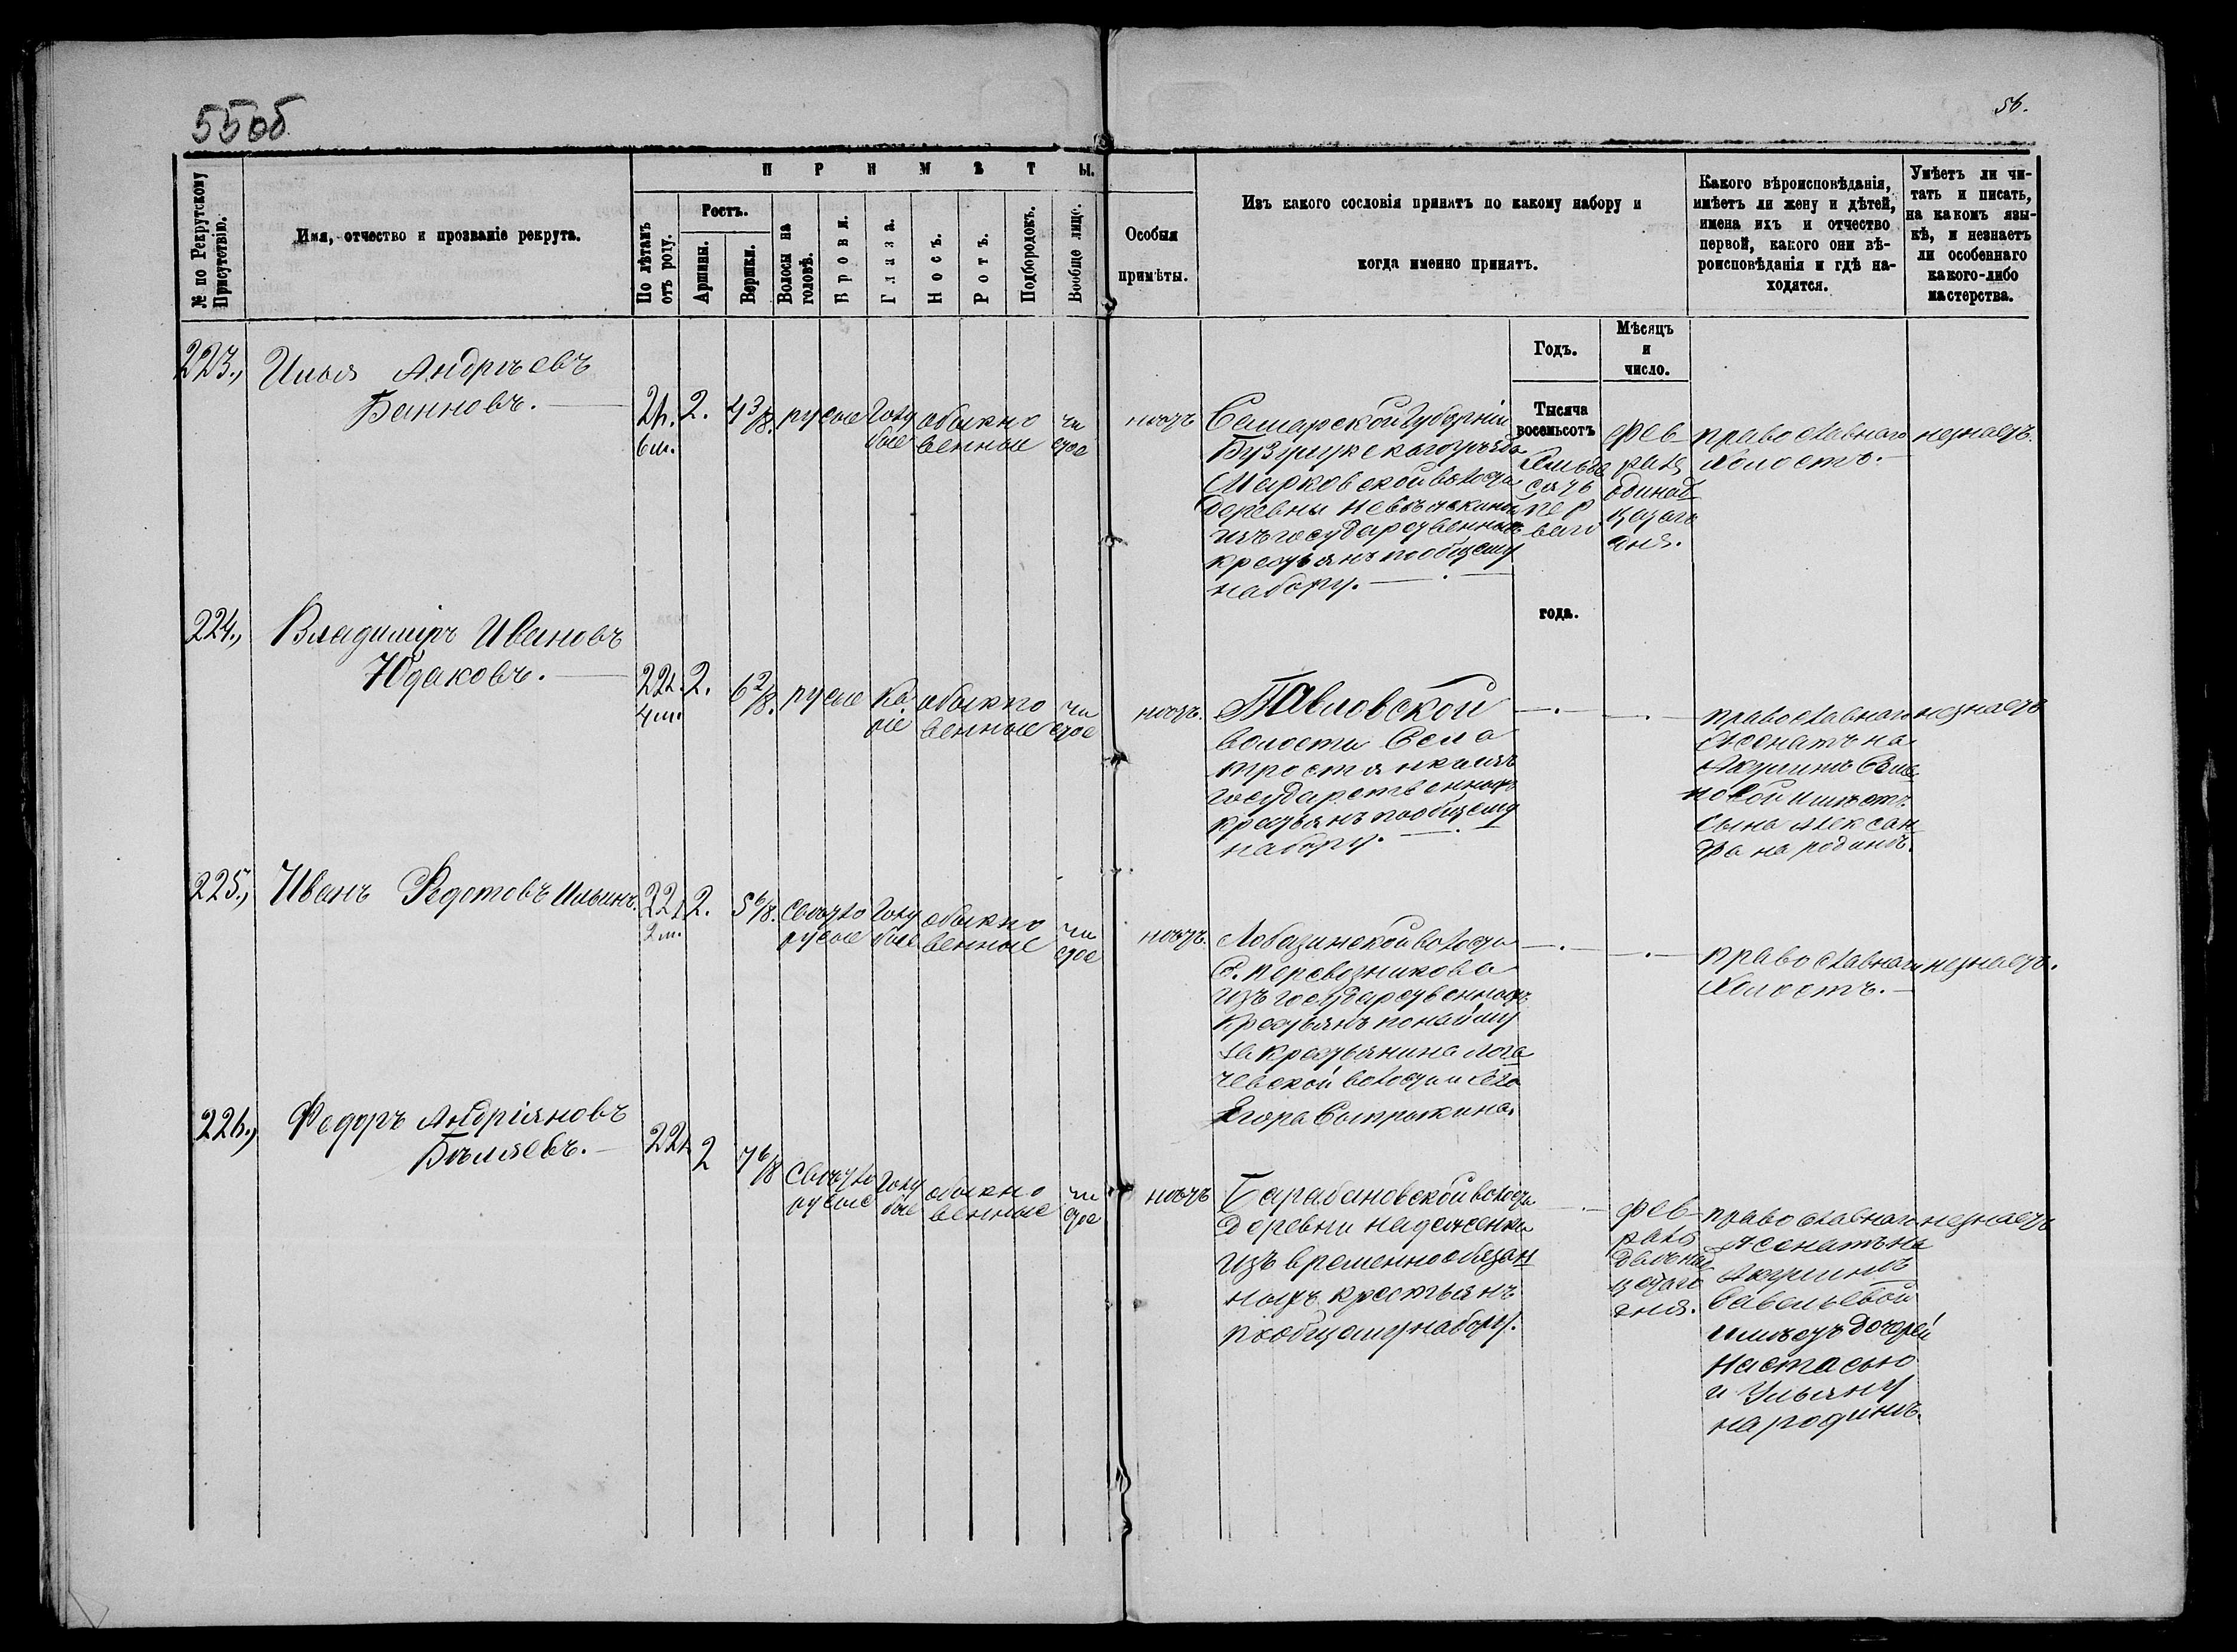 55об
56.
П Р И М Ѣ Т Ы.
№ по Рекрутскому
Присутствію.
Имя, отчество и прозваніе рекрута.
По лѣтамъ
отъ роду.
Ростъ.
Аршины.
Вершки.
Волосы на
головѣ.
Брови.
Глаза.
Носъ.
Ротъ.
Подбородокъ.
Вообще лице.
Особыя
примѣты.
Изъ какого сословія принятъ по какому набору и
когда именно принятъ.
Какого вѣроисповѣданія,
имѣетъ ли жену и дѣтей,
имена ихъ и отчество
первой, какого они вѣ-
роисповѣданія и гдѣ на-
ходятся.
Умѣетъ ли чи-
тать и писать,
на какомъ язы-
кѣ, и незнаетъ
ли особеннаго
какого-либо
мастерства.
Годъ.
Мѣсяцъ
и
число.
223.,
Илья Андрѣевъ
Банновъ.
2
6 м.
2.
4 3/8.
русые
Голу
бые
обыкно
венные
чи
стое
нѣтъ
Самарской Губерніи
Бузулукскаго уѣзда
Марковской волости
деревни
изъ государственныхъ
крестьянъ по общему
набору.
Тысяча
восемьсотъ
семьде
сятъ
пер
ваго
года.
Фев-
раля
одинад
цатаго
дня.
православнаго
Холостъ.
незнаетъ.
224.,
Владиміръ Ивановъ
Юдаковъ.
22 л.
4 м.
2.
6 2/8.
русые
Ка
ріе
обыкно
венные
чи
стое
нѣтъ.
Павловской
волости Села
государственныхъ
крестьянъ по общему
набору.
православнаго
Женатъ на
Акулинѣ Семе
новой имѣетъ
сына Алексан
дра на родинѣ.
незнаетъ
225.,
Иванъ Федотовъ Ильинъ.
22 л.
2 м.
2.
5 6/8.
Свѣтло
русые
Голу
бые
обыкно
венные
чи
стое
нѣтъ.
Лобазинской волости
С. Перевозникова
изъ государственныхъ
Крестьянъ по найму
за крестьянина Лога
чевской волости и села
Егора
православнаго
Холостъ.
незнаетъ.
226.,
Федоръ Андріяновъ
Бѣляевъ.
22 л
2
7 6/8
Свѣтло
русые
Голу
бые
обыкно
венные
чи
стое
нѣтъ
Барабановской волости
деревни Надеженки
изъ временнообязан
ныхъ крестьянъ
по общему набору.
Фев-
раля
двѣнад
цатаго
дня.
православнаго
Женатъ на
Акулинѣ
Савельевой
имѣетъ дочерей
Настасью
и Ульяну
на родинѣ.
незнаетъ